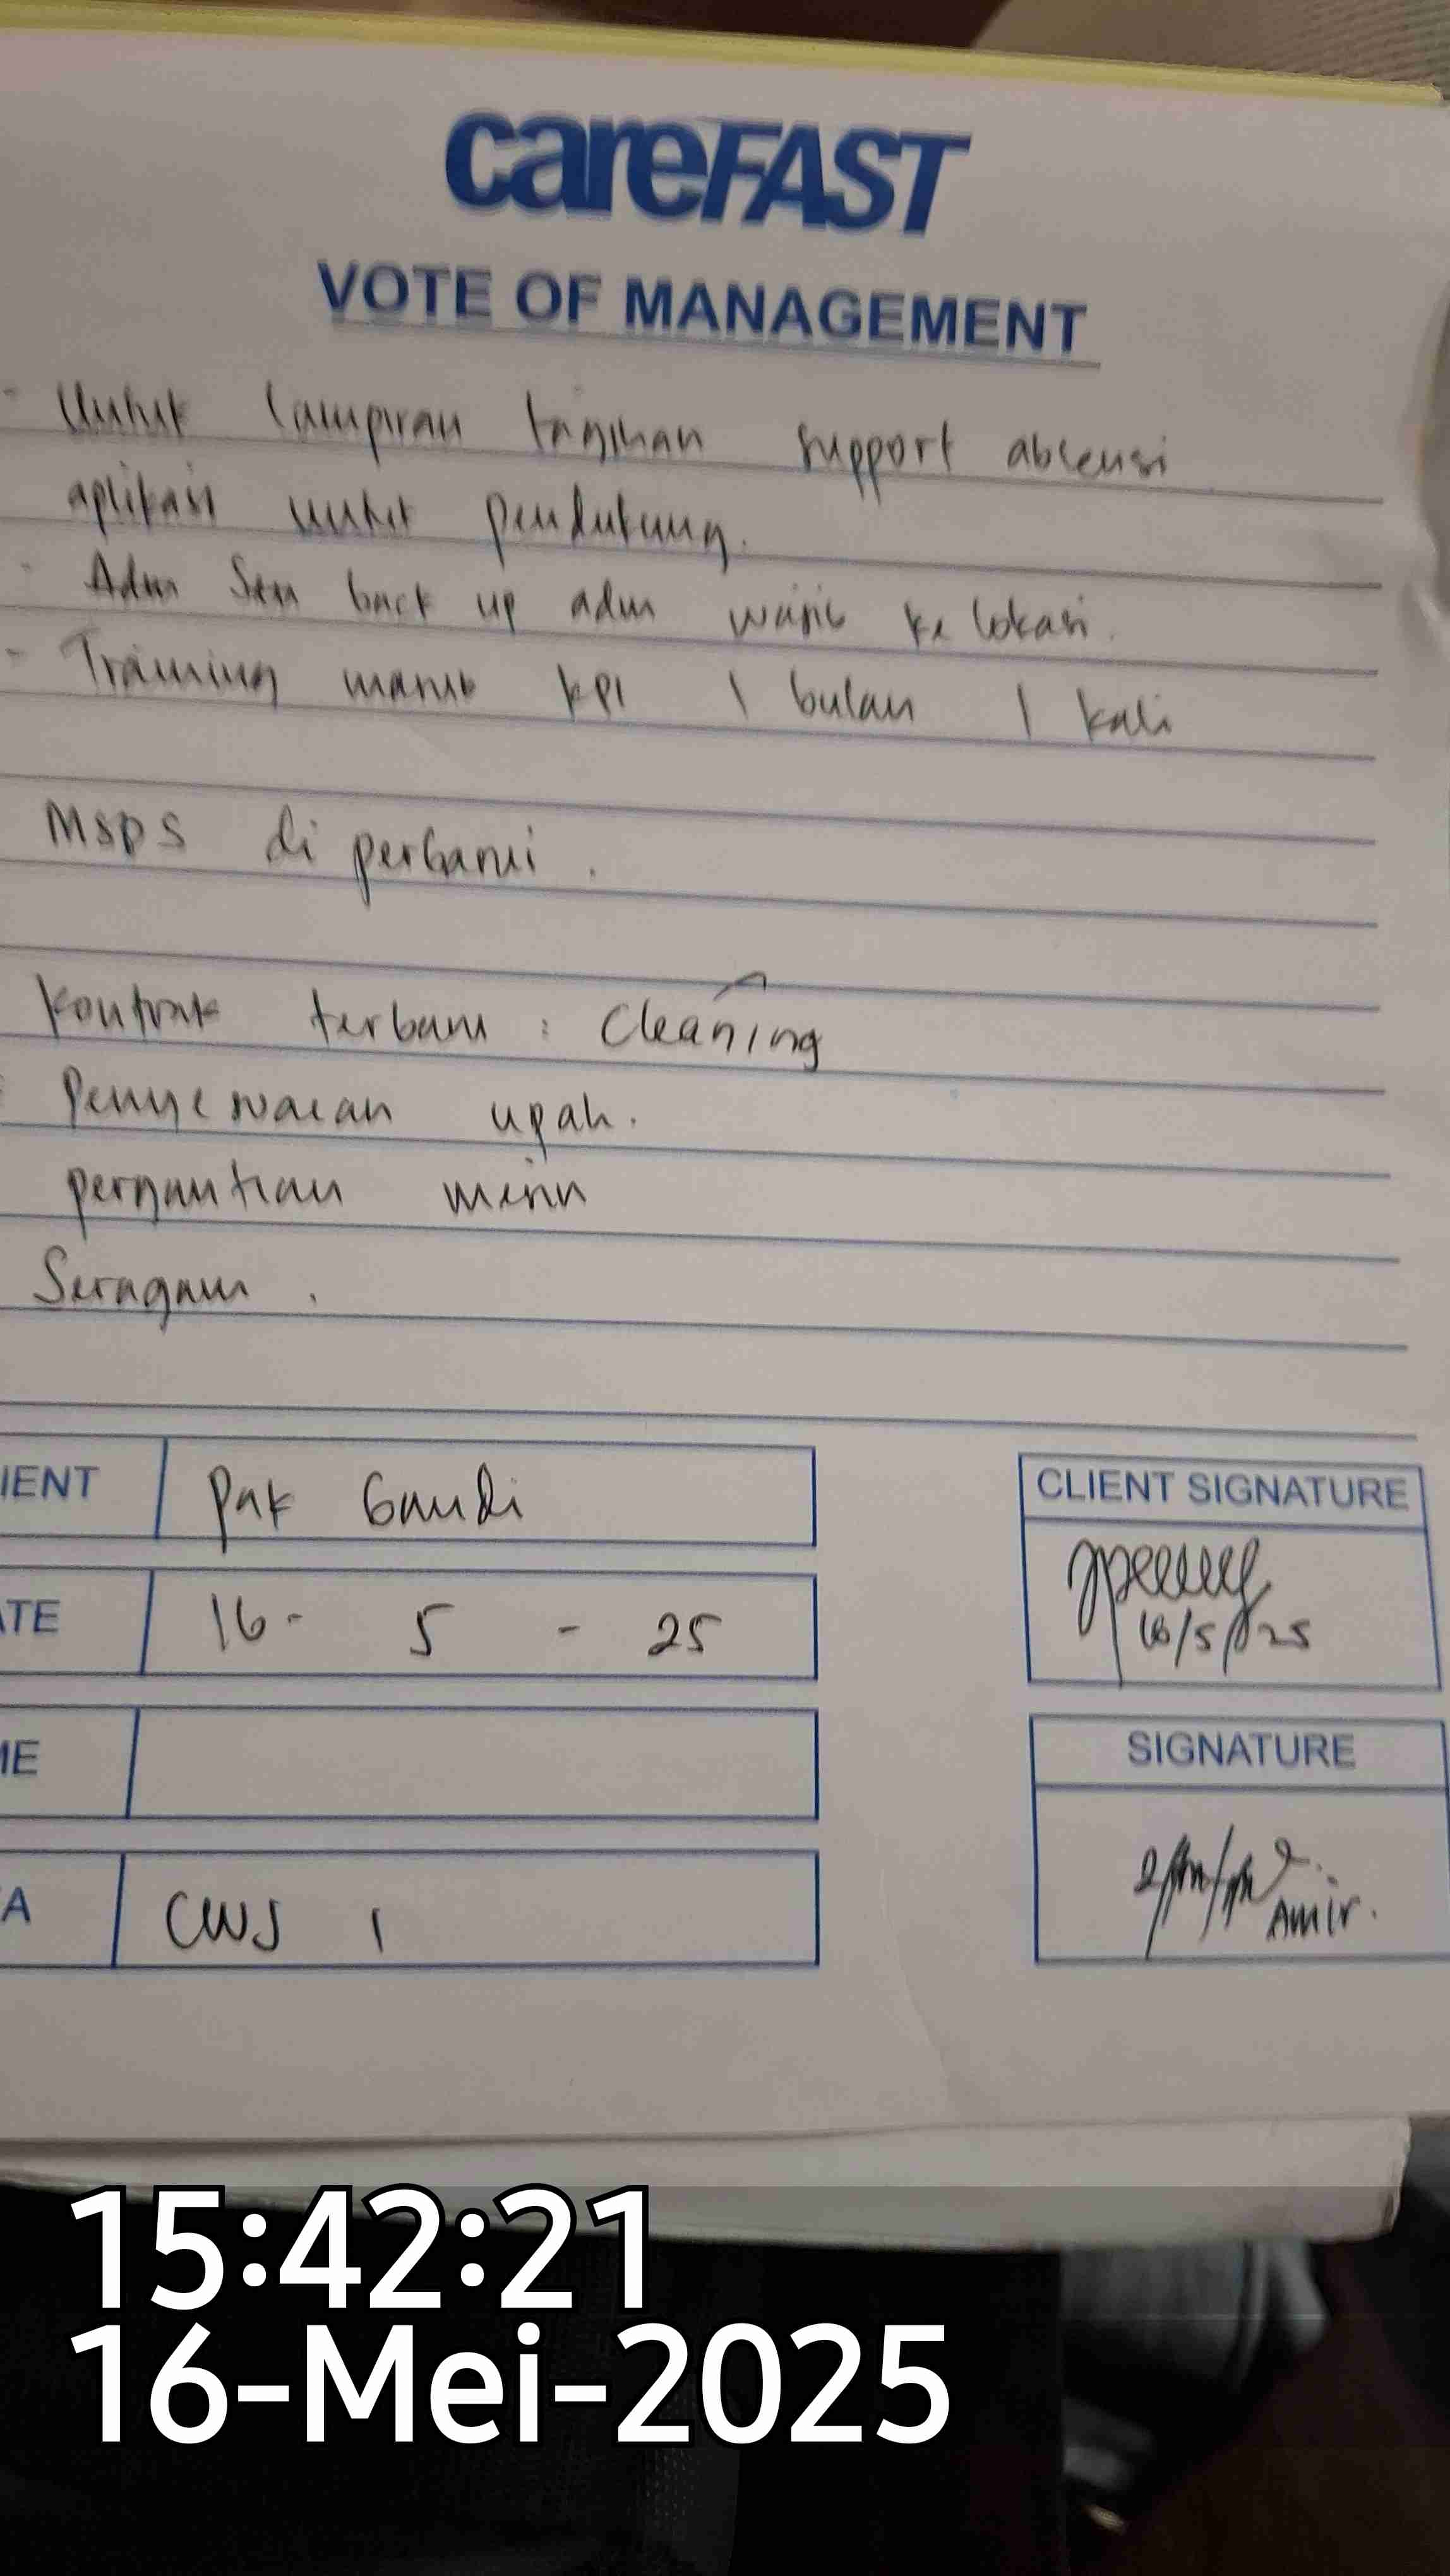 careFAST
VOTE OF MANAGEMENT
- Untuk lampiran tagihan support absensi
aplikasi untuk pendukung.
- Adm back up adm wajib ke lokasi.
- Training masuk KPI 1 bulan 1 kali
MSDS di perbarui.
Kontrak terbaru : Cleaning
Penyewaan upah.
pergantian mesin
Seragam.
IENT Pak Gandi
ATE 16 - 5 - 25
ME
A CWS 1
CLIENT SIGNATURE
16/5/25
SIGNATURE
Amir.
15:42:21
16-Mei-2025